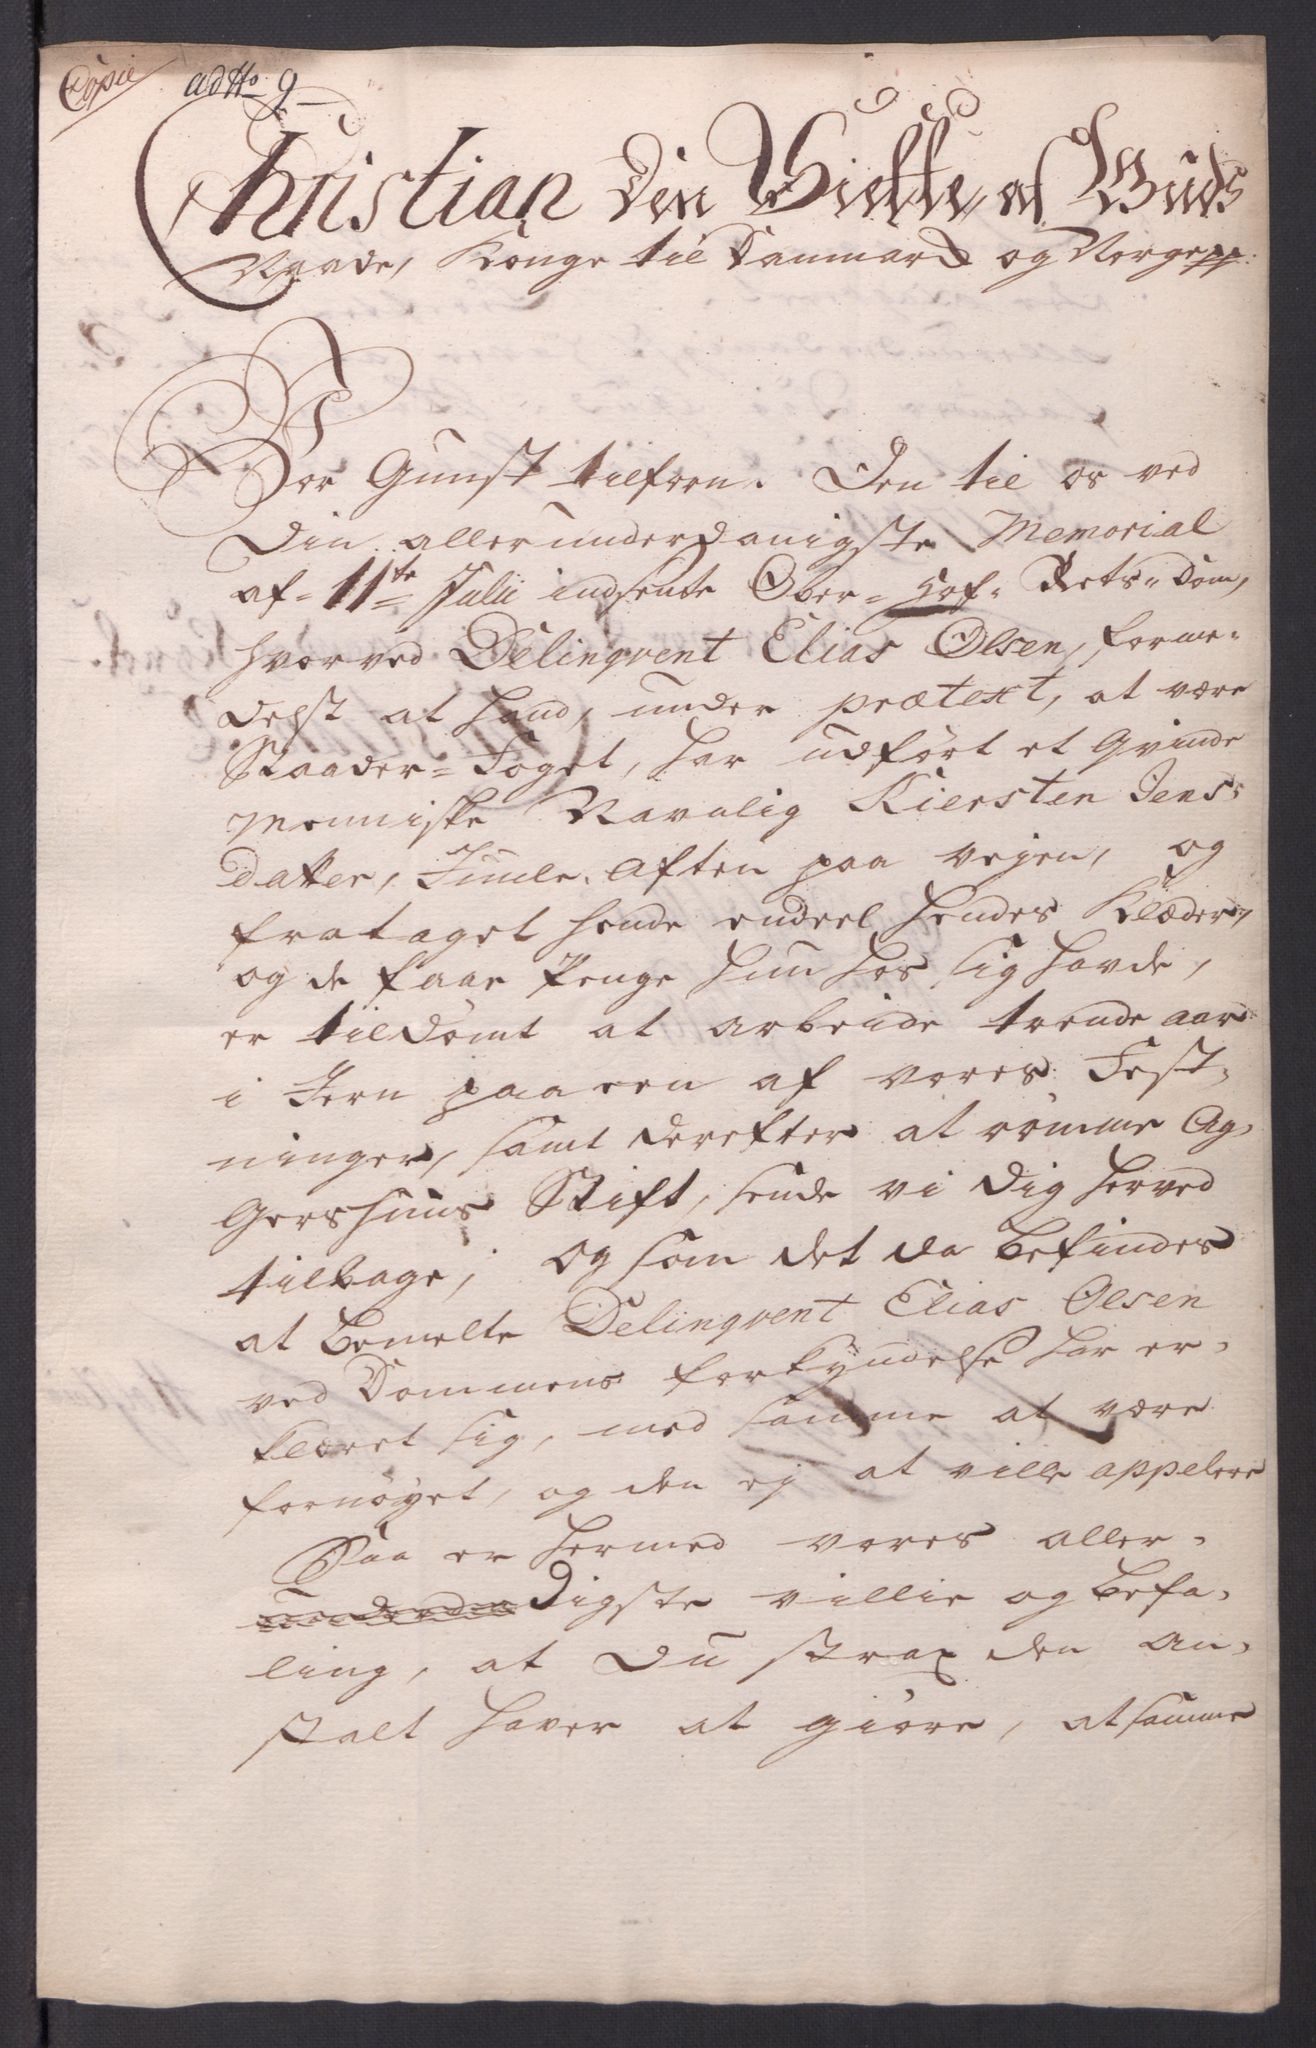 Copie ad No 9
Christian Den Siette, af Guds
Naade, Konge til Danmarck og Norge pp:
Vor Gunst tilforn. Den til os ved
Din allerunderdanigste Memorial
af 11te Julii indsente Ober-Hof-Rets-Dom,
hvorved Delinqvent Elias Olsen, forme-
delst at hand, under prætext, at være
Staader-Foget, har udført et Qvinde
Menniske Navnlig Kiersten Jens-
datter, Juule Aften paa vejen, og
frataget hende endeel hendes Klæder,
og de faae Penge hun hos sig havde,
er tildømt at arbeide trende aar
i Jern paa een af vores Fest-
ninger, samt derefter at rømme Ag-
gershuus Stift, sende vi dig herved
tilbage; og som det da befindes
at bemelte Delinqvent Elias Olsen
ved Dommens forkyndelse har er-
kleret sig, med samme at være
fornøyet, og den ej at ville appelere
Saa er hermed vores aller-
digste villie og befa-
ling, at Du strax den an-
stalt haver at giøre, at samme